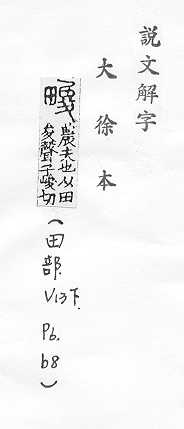 説文解字
大徐本
畯 農夫也从田
夋聲子峻切
(田部
V13下.
P6.
b8)